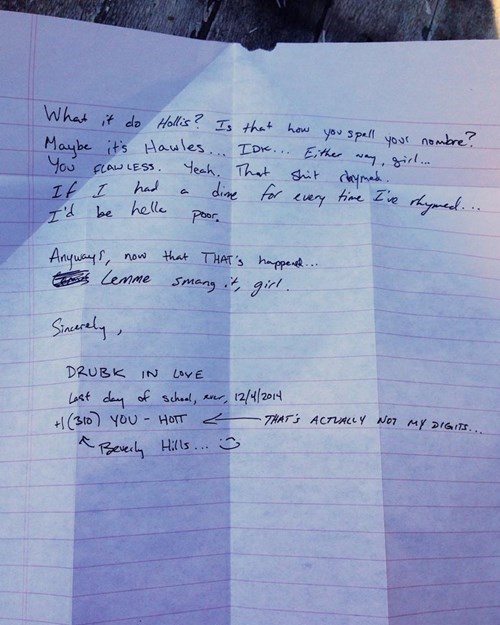 What it do Hollis? Is that how you spell your nombre?
Maybe it's Hawles... IDK... Either way, girl...
You FLAWLESS. Yeah. That shit rhymed.
If I had a dime for every time I've rhymed...
I'd be hella poor.
Anyways, now that THAT's happened...
Lemme smang it, girl.
Sincerely,
DRUBK IN LOVE
Last day of school, ever, 12/4/2014
+1(310) YOU-HOTT ← THAT'S ACTUALLY NOT MY DIGITS...
↖ Beverly Hills... :)